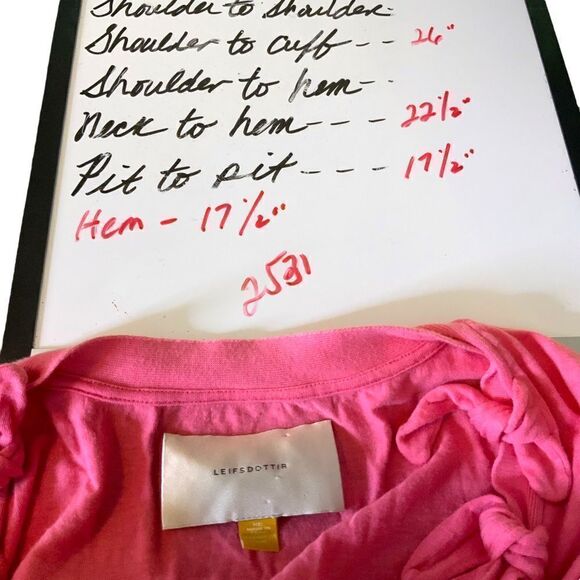 Shoulder to shoulder-
Shoulder to cuff -- 26"
Shoulder to hem--
Neck to hem--- 22 1/2"
Pit to pit --- 17 1/2"
Hem - 17 1/2"
2531
LEIFSDOTTIR